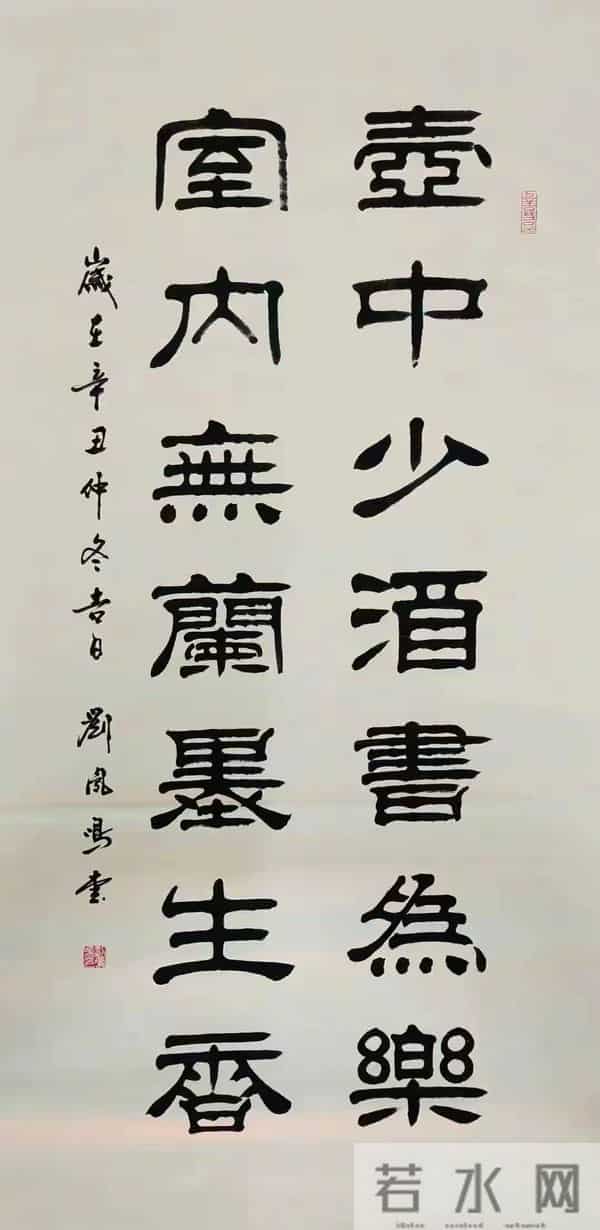 壺中少酒書為樂
室内無蘭墨生香
歲在辛丑仲冬吉日 劉鳳鳴書
若水网